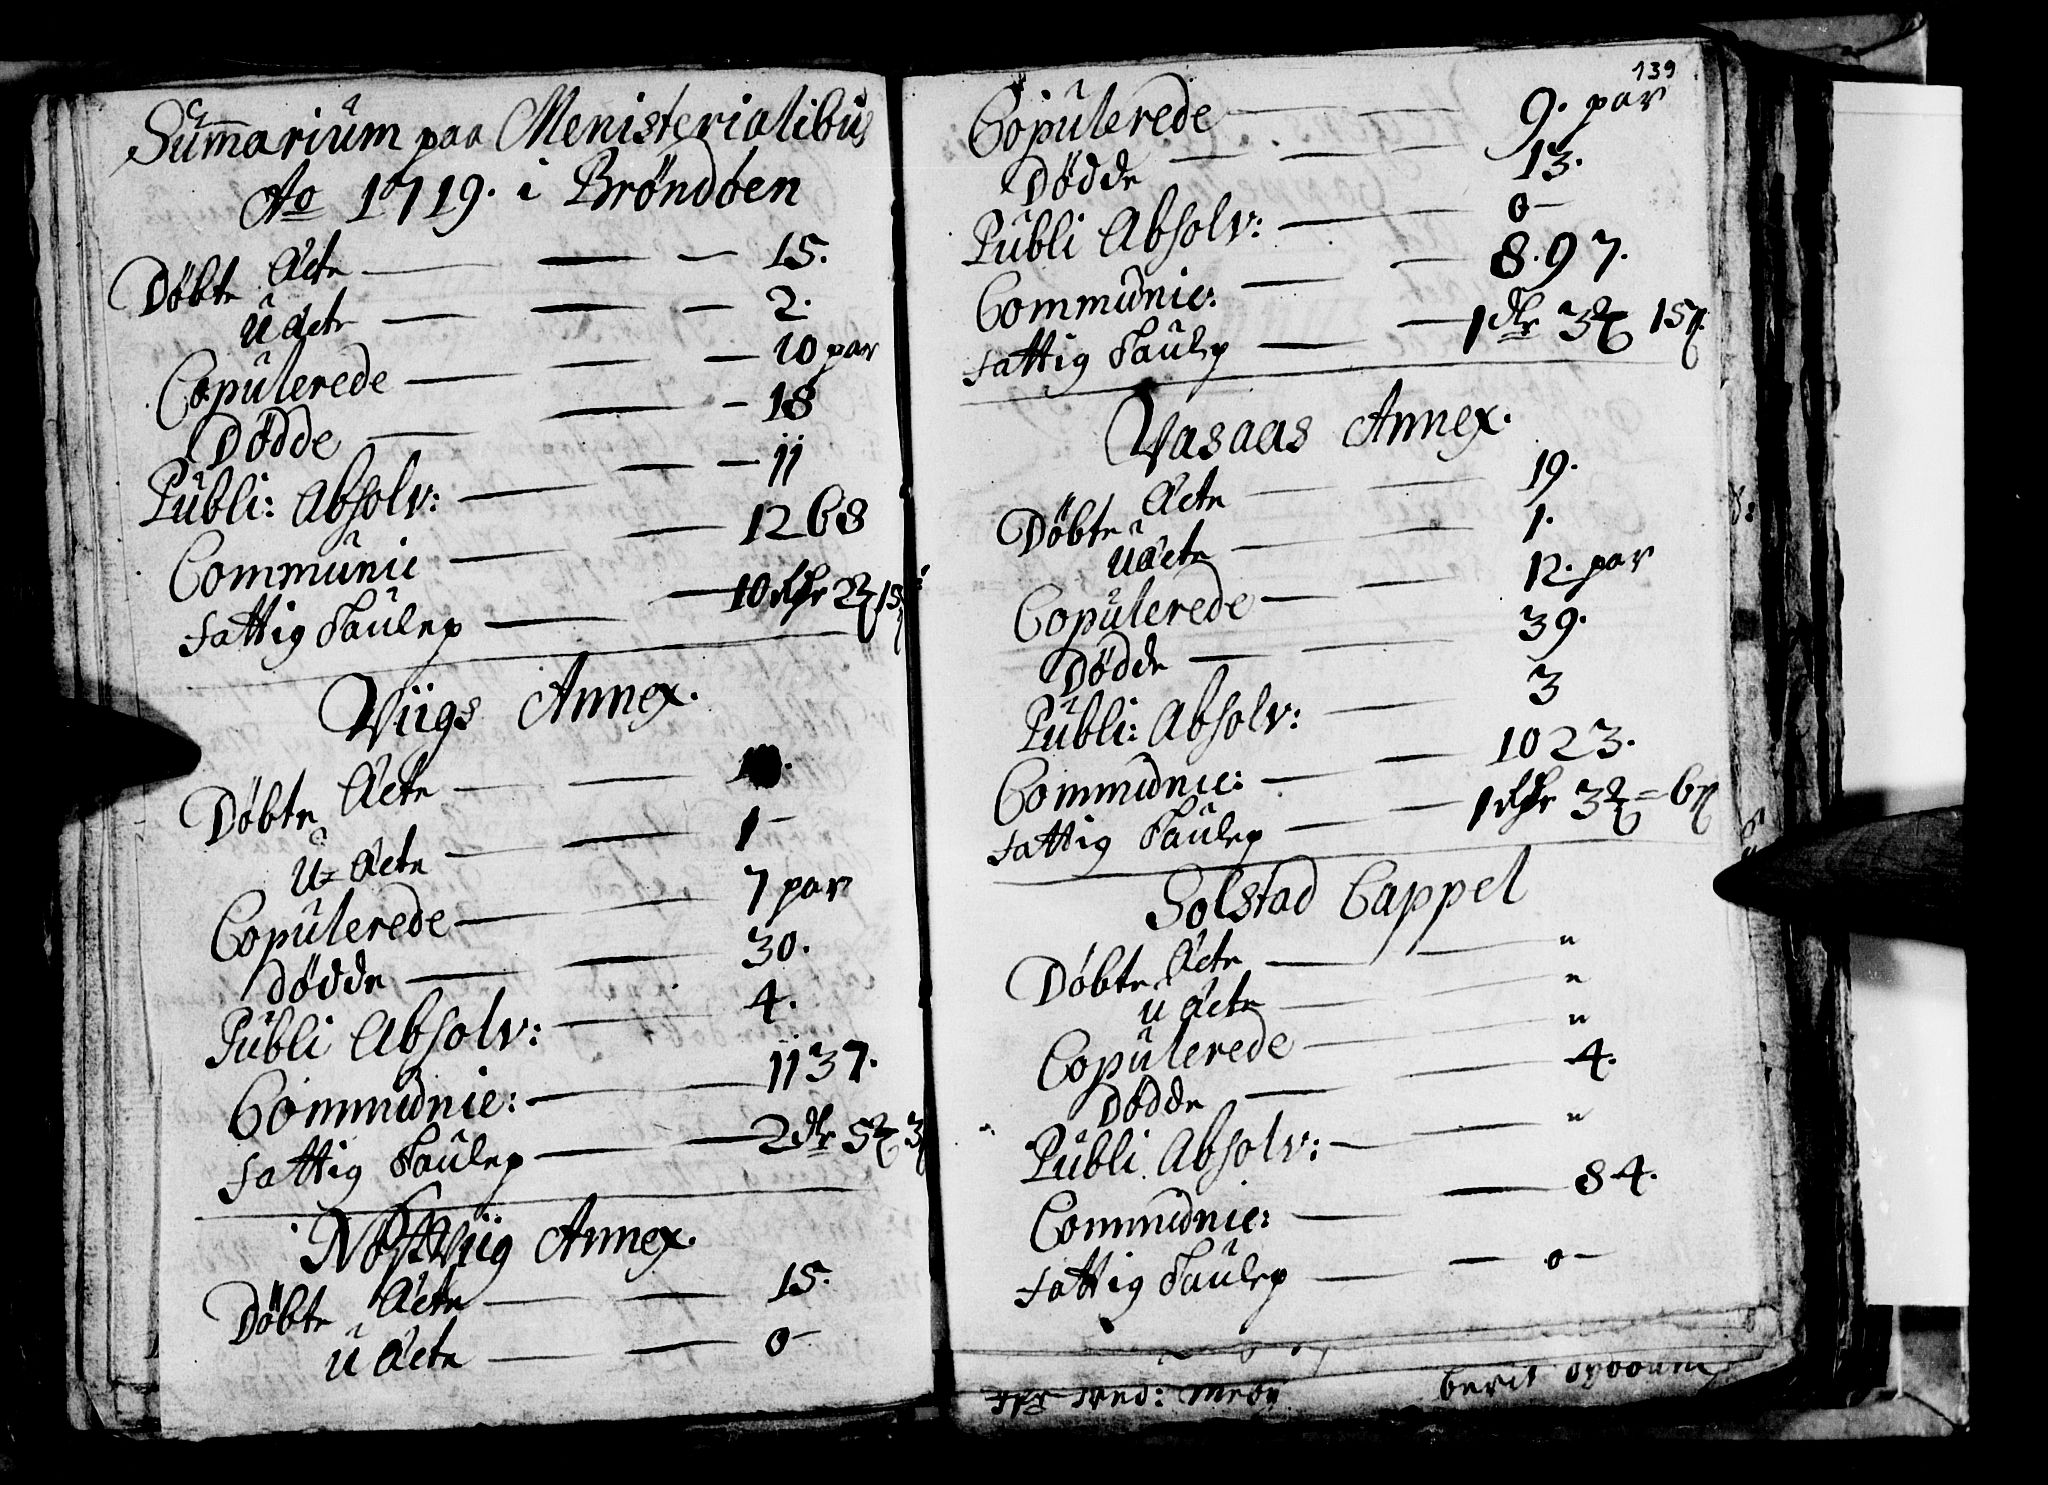 Summarium paa Menisterialibus
Ao 1719. i Brøndøen
Døbte Ächte — 15.
U Ächte — 2.
Copulerede — 10 par
Dødde — 18
Publi: Absolv: — 11
Communic — 1268
Fattig Taulen — 10 dlr 2 15
Viigs Annex.
Døbte Ächte —
U= Ächte — 1 -
Copulerede — 7 par
Dødde — 30.
Publi Absolv: — 4.
Communic: — 1137.
Fattig Taulen — 2 dlr 5 3
Nøstviig Annex.
Døbte Ächte — 15.
U Ächte — 0 -
139
Copulerede — 9. par
Dødde — 13.
Publi Absolv: — 0 -
Communic: — 8.97.
Fattig Taulen — 1 dlr 3 15
Vasaas Annex.
Døbte Ächte — 19.
U Ächte — 1.
Copulerede — 12. par
Dødde — 39.
Publi: Absolv: — 3
Communic: — 1023.
Fattig Taulen — 1 dlr 3 = 6
Solstad Cappel
Døbte Ächte — "
U Ächte — "
Copulerede — "
Dødde — 4.
Publi Absolv: — "
Communic: — 84.
Fattig Taulen — 0 -
berit